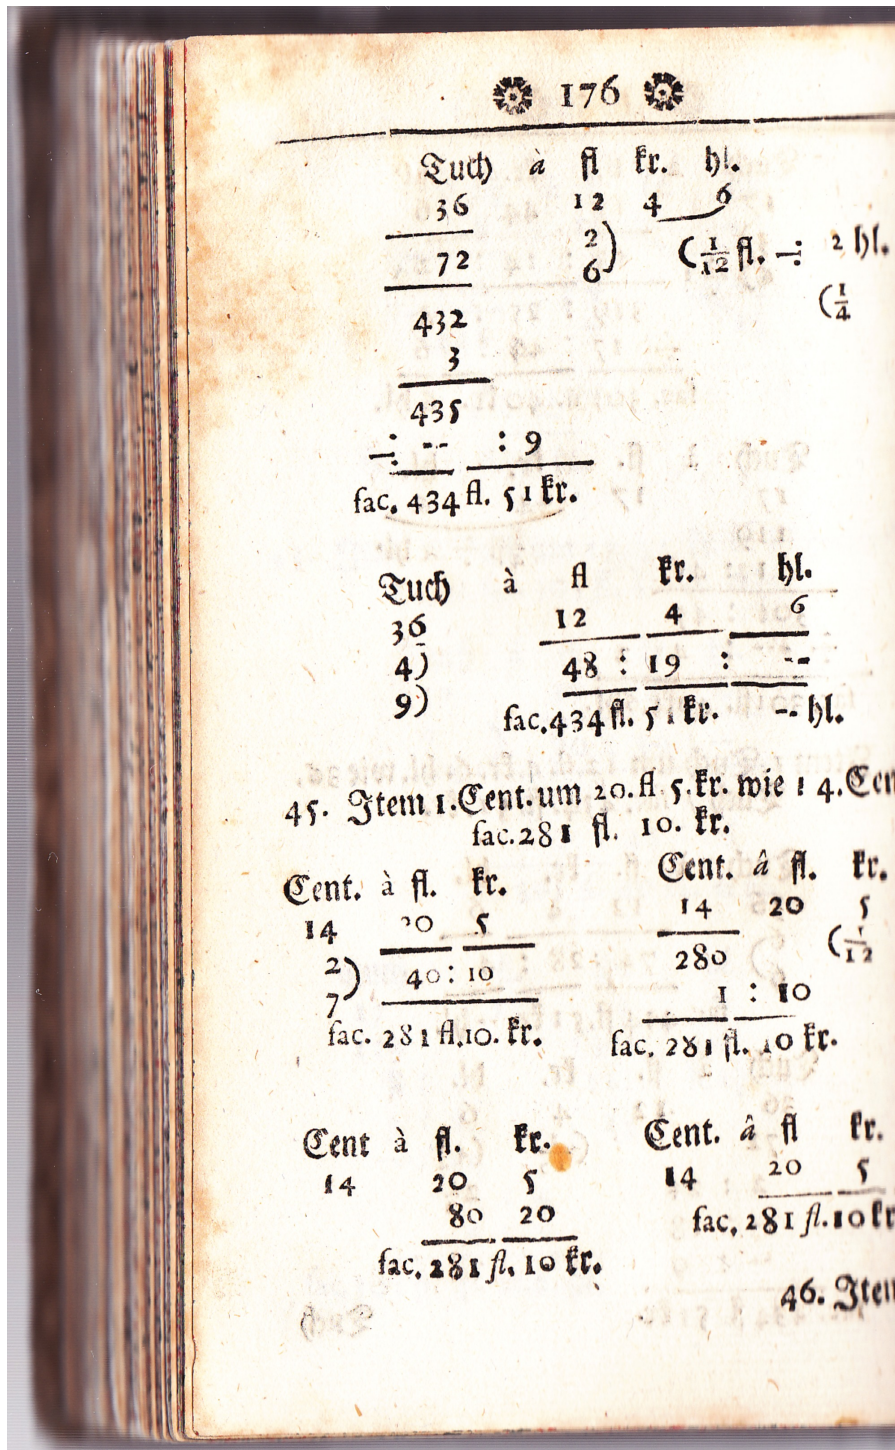 176
Tuch à fl kr. hl.
36 12 4 6
72 2) (1/12 fl. ÷ 2 hl.
6) (1/4
432
3
435
÷ -- : 9
fac. 434 fl. 51 kr.
Tuch à fl kr. hl.
36 12 4 6
4) 48 : 19 : --
9) fac. 434 fl. 51 kr. -- hl.
45. Item 1. Cent. um 20. fl 5. kr. wie 14. Cen
fac. 281 fl. 10. kr.
Cent. à fl. kr.
14 20 5
2) 40 : 10
7
fac. 281 fl. 10. kr.
Cent. â fl. kr.
14 20 5
280 (1/12
1 : 10
fac. 281 fl. 10 kr.
Cent à fl. kr.
14 20 5
80 20
fac. 281 fl. 10 kr.
Cent. â fl kr.
14 20 5
fac. 281 fl. 10 kr
46. Iten